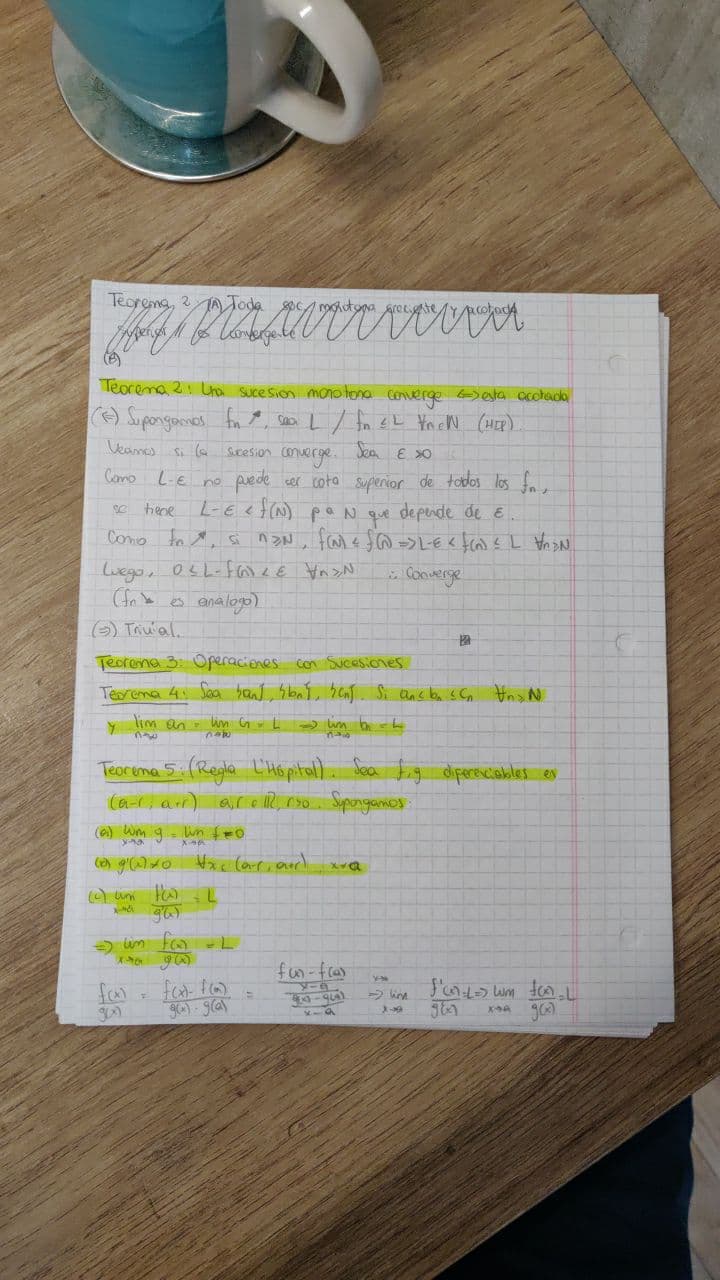 Teorema 2 (A) Toda suc. monotona creciente y acotada
superior es convergente
(B)
Teorema 2: Una sucesion monotona converge ⟺ esta acotada
(⇐) Supongamos fn ↗, sea L / fn ≤ L ∀n∈N (HIP).
Veamos si la sucesion converge. Sea ε>0
Como L-ε no puede ser cota superior de todos los fn,
se tiene L-ε < f(N) pa N que depende de ε.
Como fn ↗, si n≥N, f(N) ≤ f(n) => L-ε < f(n) ≤ L ∀n≥N
Luego, 0 ≤ L-f(n) < ε ∀n≥N ∴ Converge
(fn ↘ es analogo)
(⇒) Trivial.
Teorema 3: Operaciones con Sucesiones
Teorema 4: Sea {an}, {bn}, {cn}. Si an ≤ bn ≤ cn ∀n≥N
y lim n→∞ an = lim n→∞ cn = L => lim n→∞ bn = L
Teorema 5: (Regla L'Hôpital). Sea f,g diferenciables en
(a-r, a+r) a,r ∈ ℝ, r>0. Supongamos:
(a) lim x→a g = lim x→a f = 0
(b) g'(x) ≠ 0 ∀x ∈ (a-r, a+r) x≠a
(c) lim x→a f'(x)/g'(x) = L
=> lim x→a f(x)/g(x) = L
f(x)/g(x) = f(x)-f(a)/g(x)-g(a) = f(x)-f(a)/x-a / g(x)-g(a)/x-a x→a => lim x→a f'(x)/g'(x) = L => lim x→a f(x)/g(x) = L